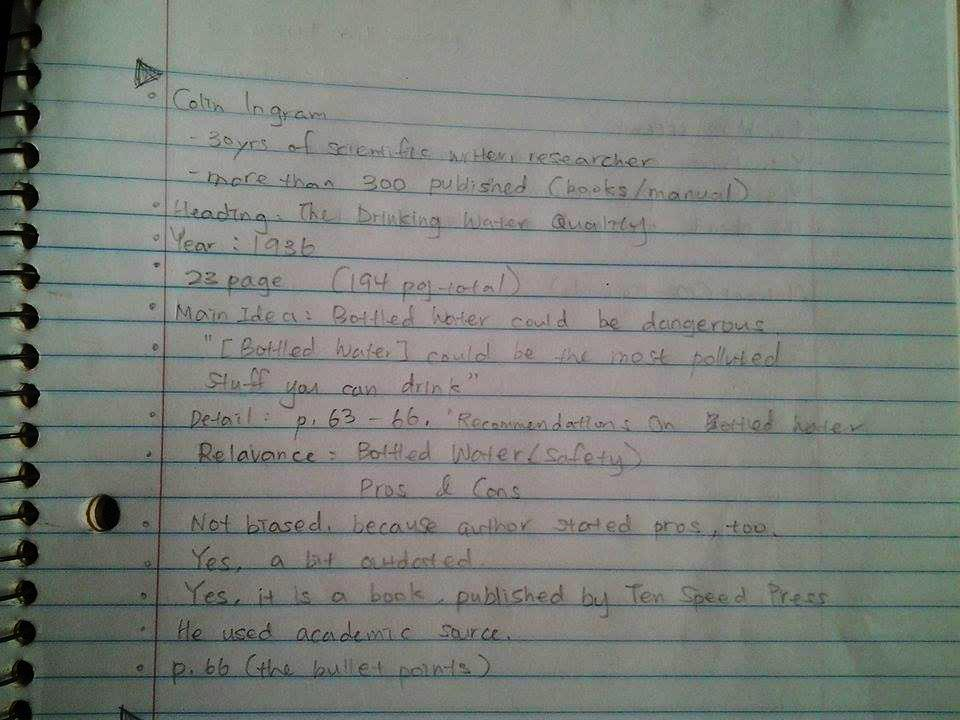 Colin Ingram
- 30yrs of scientific writer, researcher
- more than 300 published (books/manual)
Heading: The Drinking Water Quality
Year: 1936
23 page (194 pg-total)
Main Idea: Bottled Water could be dangerous
"[Bottled Water] could be the most polluted
stuff you can drink"
Detail: p. 63-66. "Recommendations On Bottled Water
Relavance: Bottled Water (safety)
Pros & Cons
Not biased, because author stated pros, too.
Yes, a bit outdated.
Yes, it is a book, published by Ten Speed Press
He used academic source.
p. 66 (the bullet points)